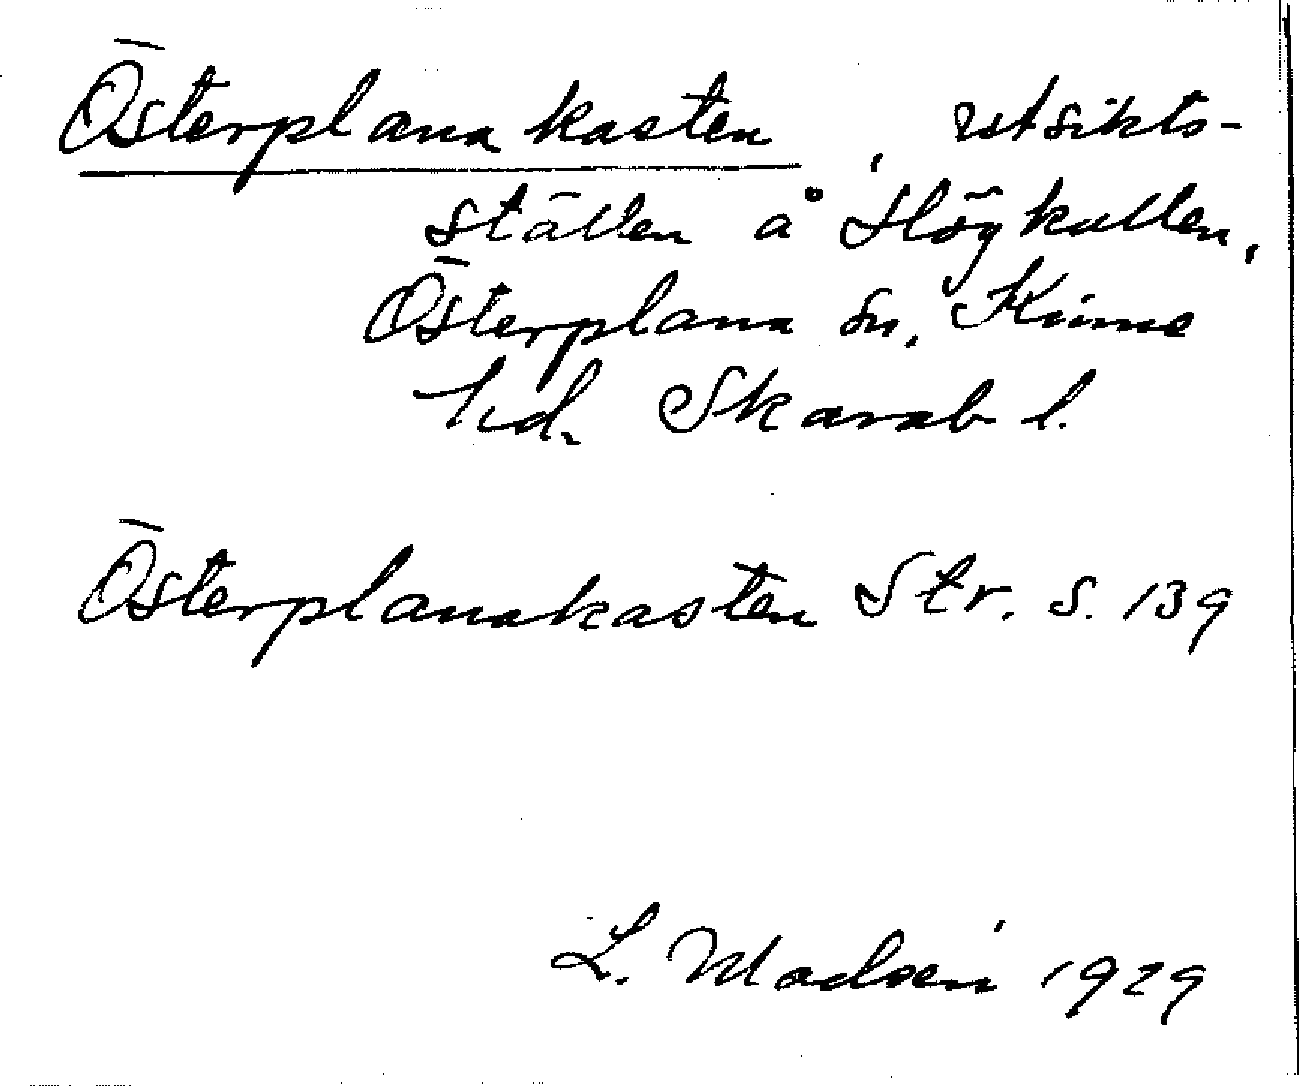 Österplana kasten, utsikts-
ställen å Högkullen,
Österplana sn, Kinne
hd. Skarab l.
Österplanakasten Str. s. 139
L. Madsén 1929